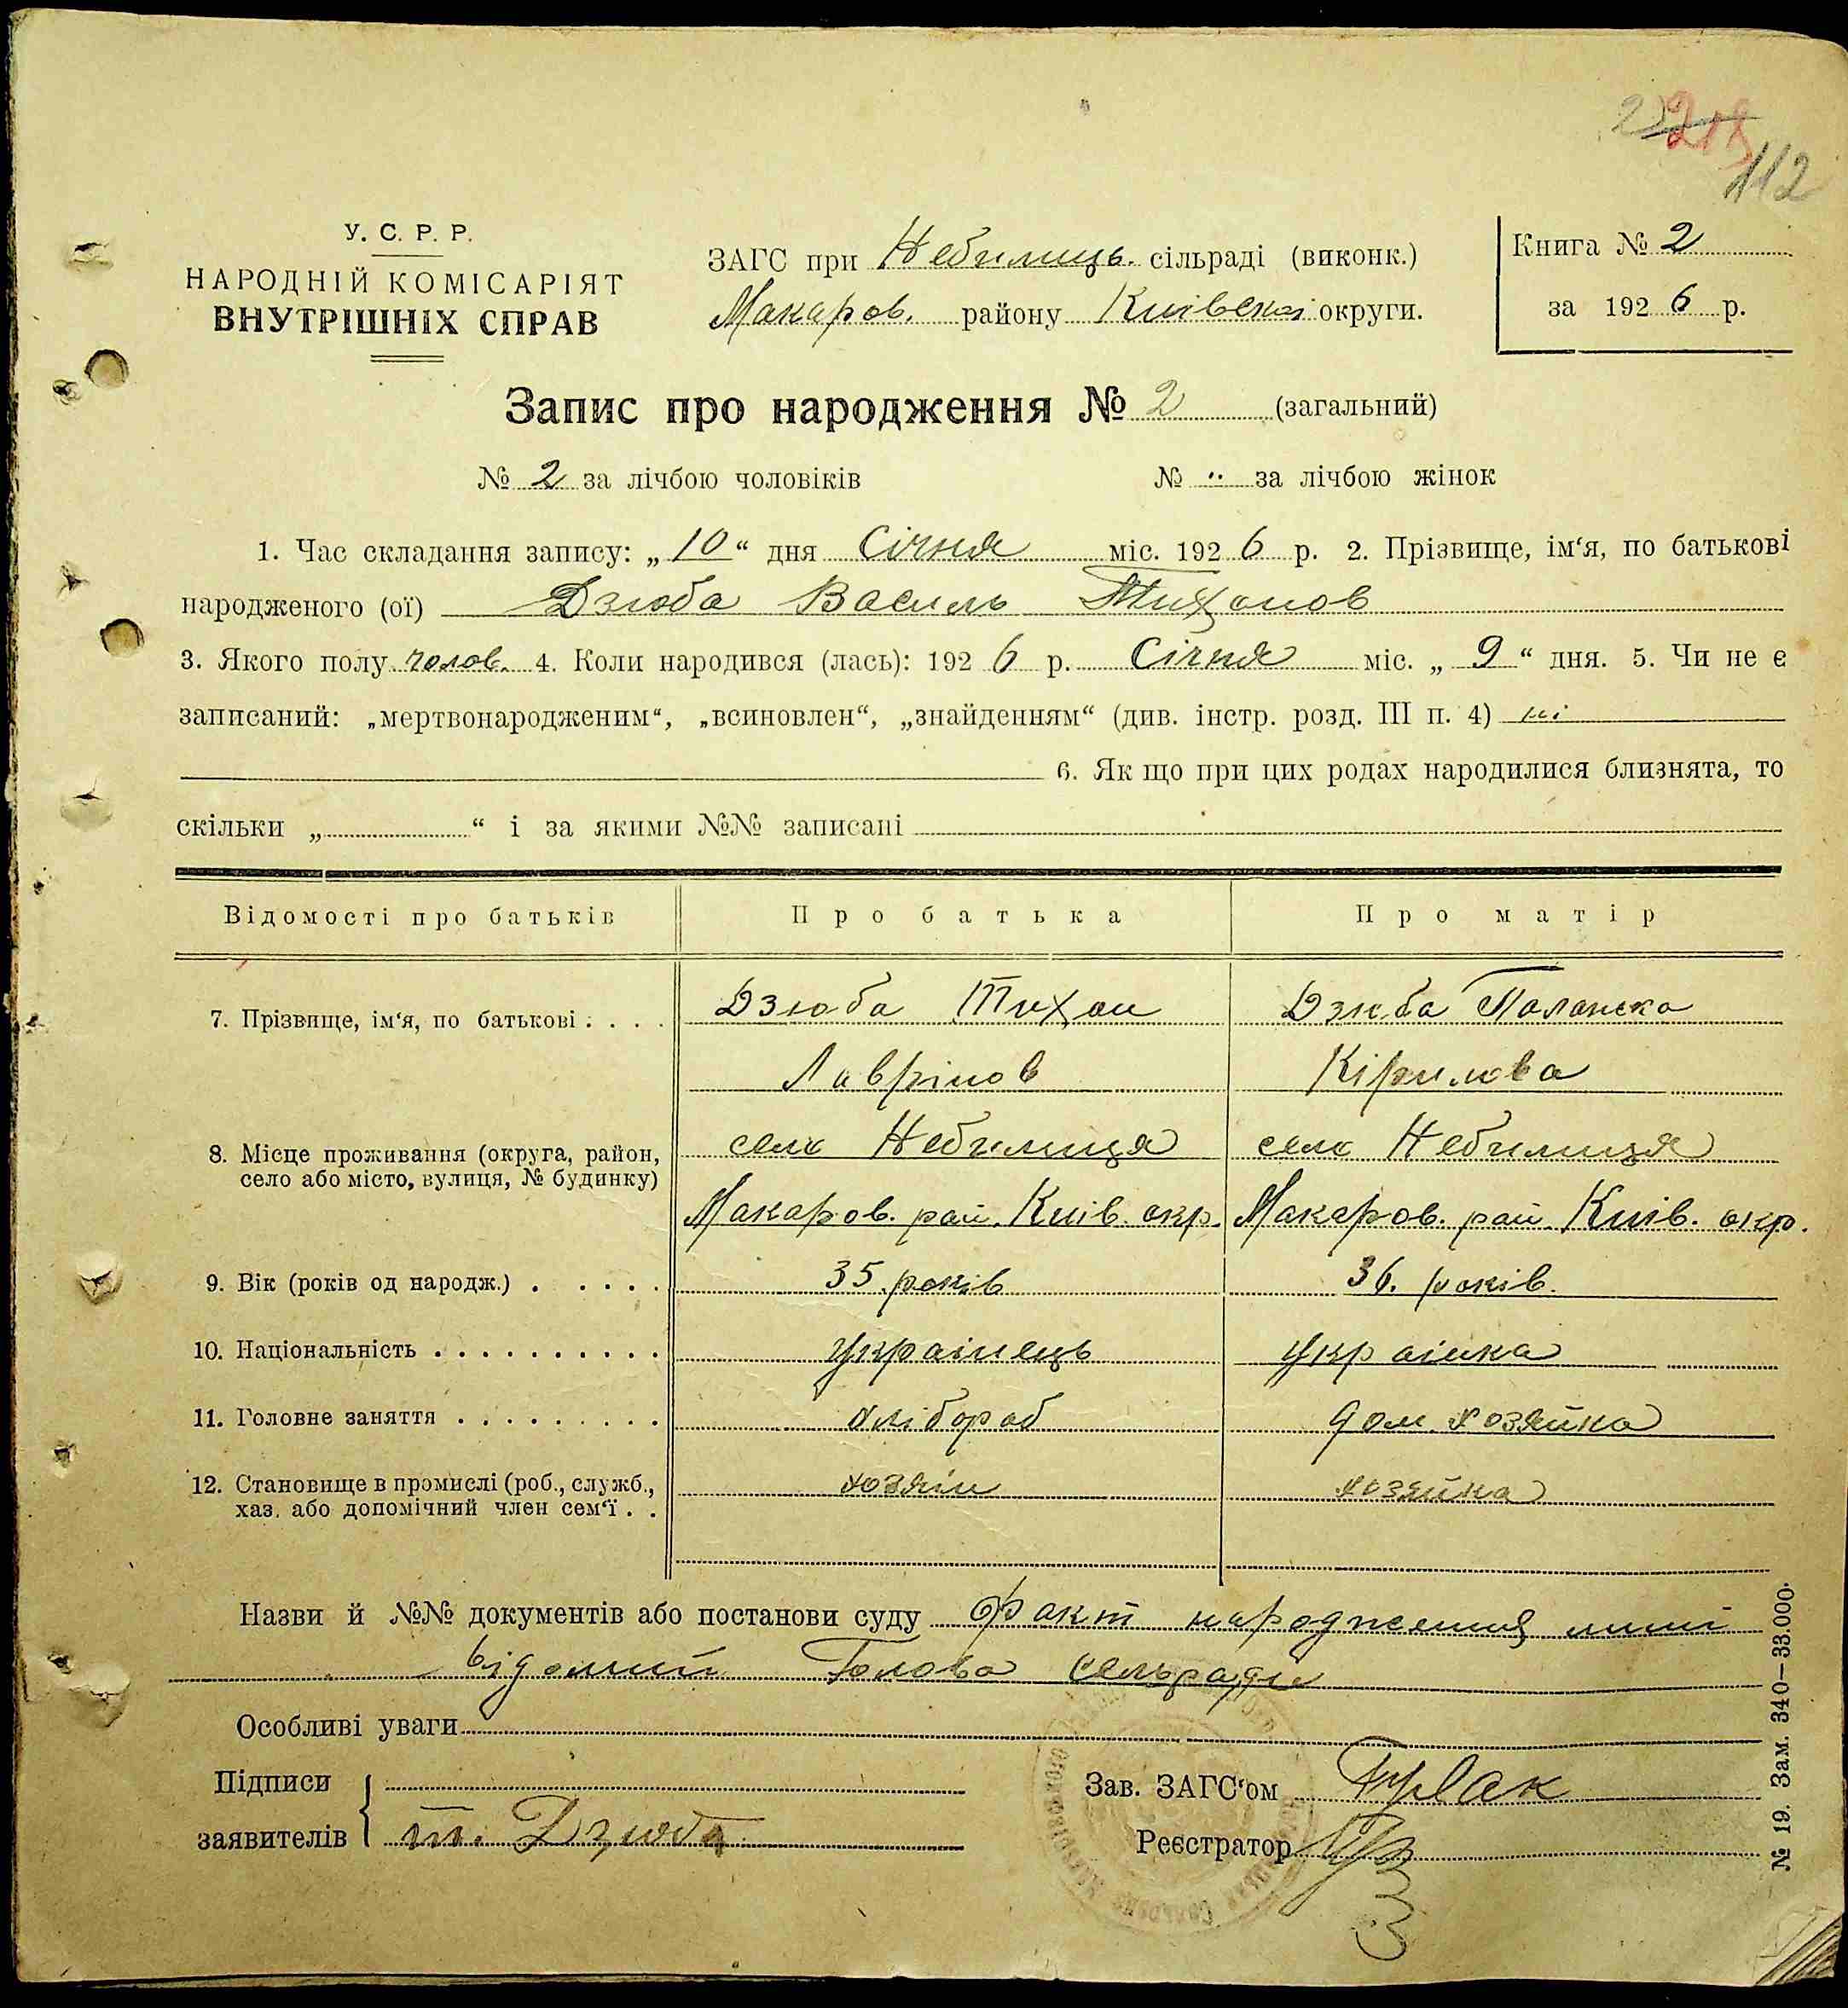 112
У. С. Р. Р.
НАРОДНІЙ КОМІСАРІЯТ
ВНУТРІШНІХ СПРАВ
ЗАГС при Небилиць. сільраді (виконк.)
Макаров. району Київської округи.
Книга № 2
за 1926 р.
Запис про народження № 2 (загальний)
№ 2 за лічбою чоловіків № „ за лічбою жінок
1. Час складання запису: „10“ дня Січня міс. 1926 р. 2. Прізвище, ім‘я, по батькові
народженого (ої) Дзюба Василь Тихонов
3. Якого полу чолов. 4. Коли народився (лась): 1926 р. Січня міс. „9“ дня. 5. Чи не є
записаний: „мертвонародженим“, „всиновлен“, „знайденням“ (див. інстр. розд. III п. 4) ні
6. Як що при цих родах народилися близнята, то
скільки „ “ і за якими №№ записані
Відомості про батьків Про батька Про матір
7. Прізвище, ім‘я, по батькові . . . . Дзюба Тихон Дзюба Паланска
Лаврінов Кірилова
8. Місце проживання (округа, район, село або місто, вулиця, № будинку) село Небилиця село Небилиця
Макаров. рай. Київ. окр. Макаров. рай. Київ. окр.
9. Вік (років од народж.) . . . . . 35 років 36. років.
10. Національність . . . . . . . . . . Українець Українка
11. Головне заняття . . . . . . . . . хлібороб дом. хозяйка
12. Становище в промислі (роб., служб., хаз. або допомічний член сем‘ї . . хозяін хозяйка
Назви й №№ документів або постанови суду Факт народження мині
відомий Голова сельради
Особливі уваги
Підписи
заявителів т. Дзюба
Зав. ЗАГС‘ом
Реєстратор
№ 19. Зам. 340—33.000.